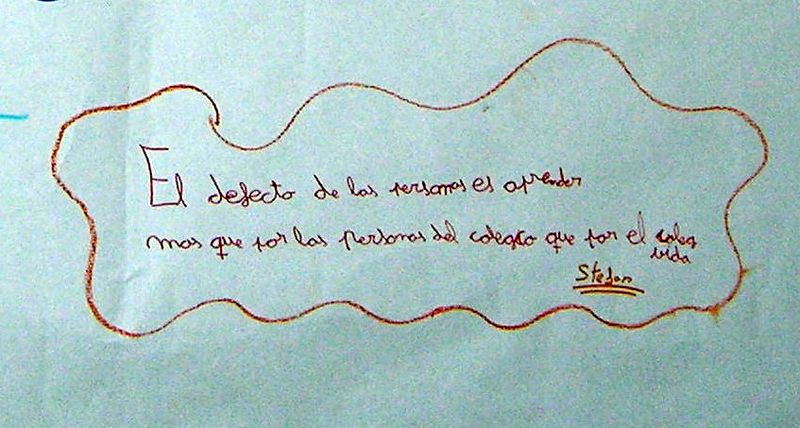 El defecto de las personas es aprender
mas que por las personas del colegio que por el
vida
Stefan